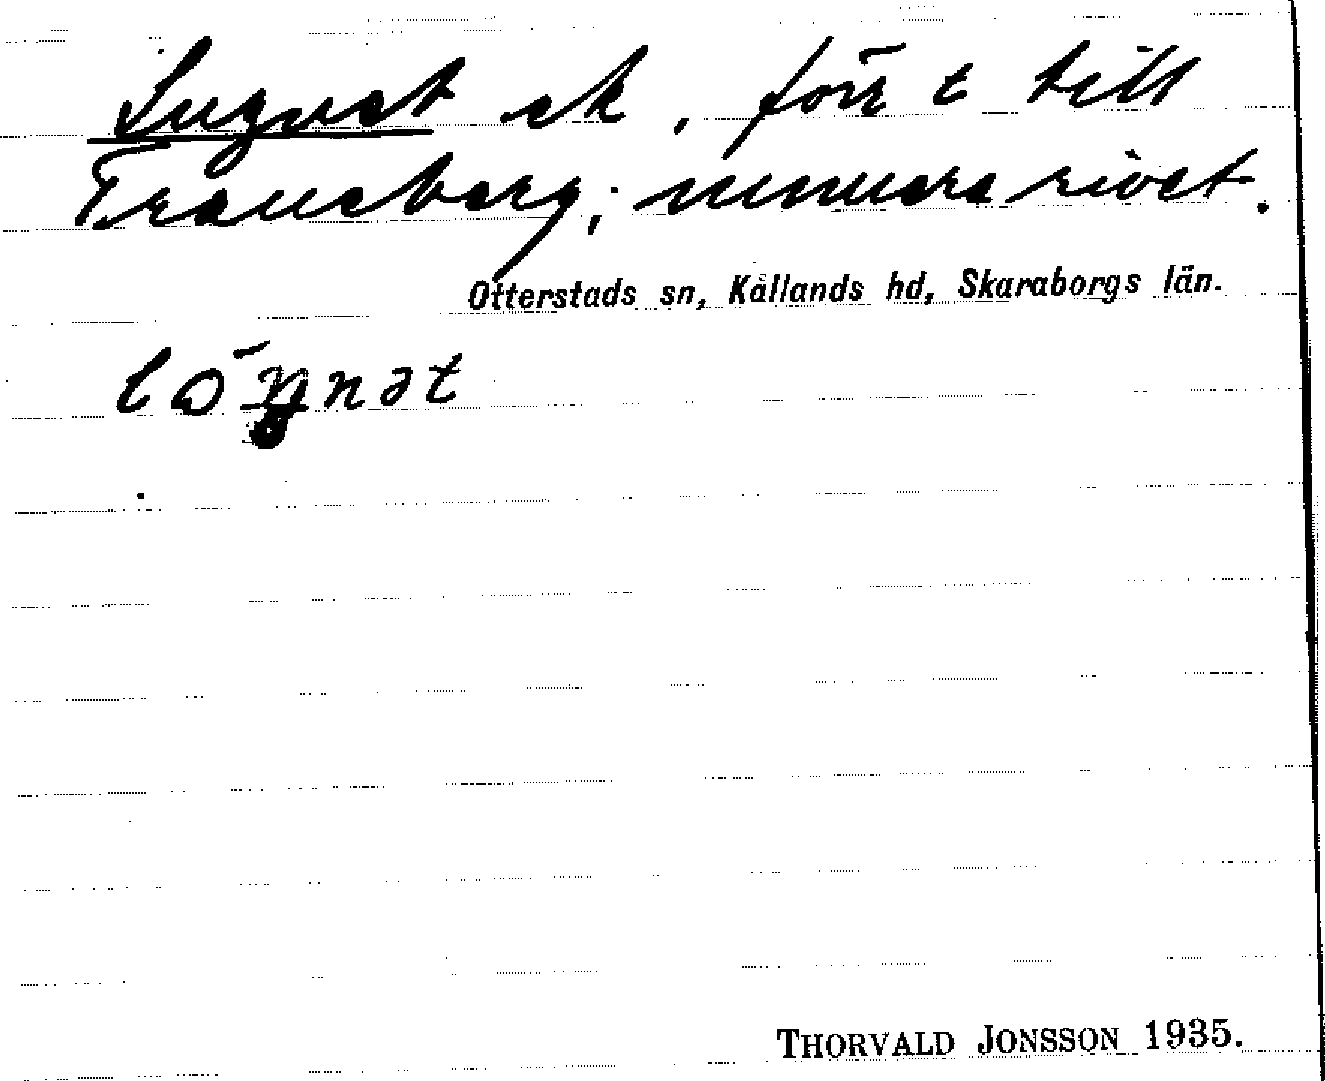 Lugnet , förr t till
Traneberg; numera rivet.
Otterstads sn, Kållands hd, Skaraborgs län.
THORVALD JONSSON 1935.